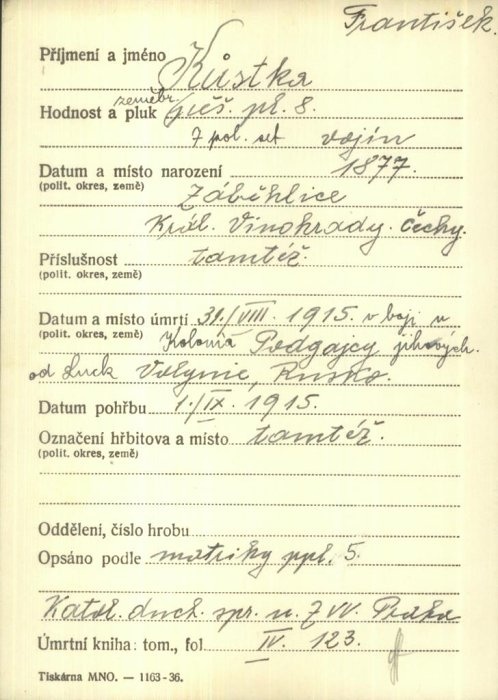 František.
Příjmení a jméno Kůstka
Hodnost a pluk zeměbr. pěš. pl. 8.
7 pol. set vojín
Datum a místo narození 1877.
(polit. okres, země) Záběhlice
Král. Vinohrady. Čechy.
Příslušnost tamtéž.
(polit. okres, země)
Datum a místo úmrtí 31./VIII. 1915. v boji u
(polit. okres, země) Kolonia Podgajcy jihových.
od Luck Volynie, Rusko.
Datum pohřbu 1./IX. 1915.
Označení hřbitova a místo tamtéž.
(polit. okres, země)
Oddělení, číslo hrobu
Opsáno podle matriky ppl. 5.
Katol. duch. spr. u ZVV. Praha
Úmrtní kniha: tom., fol IV. 123.
Tiskárna MNO. — 1163-36.